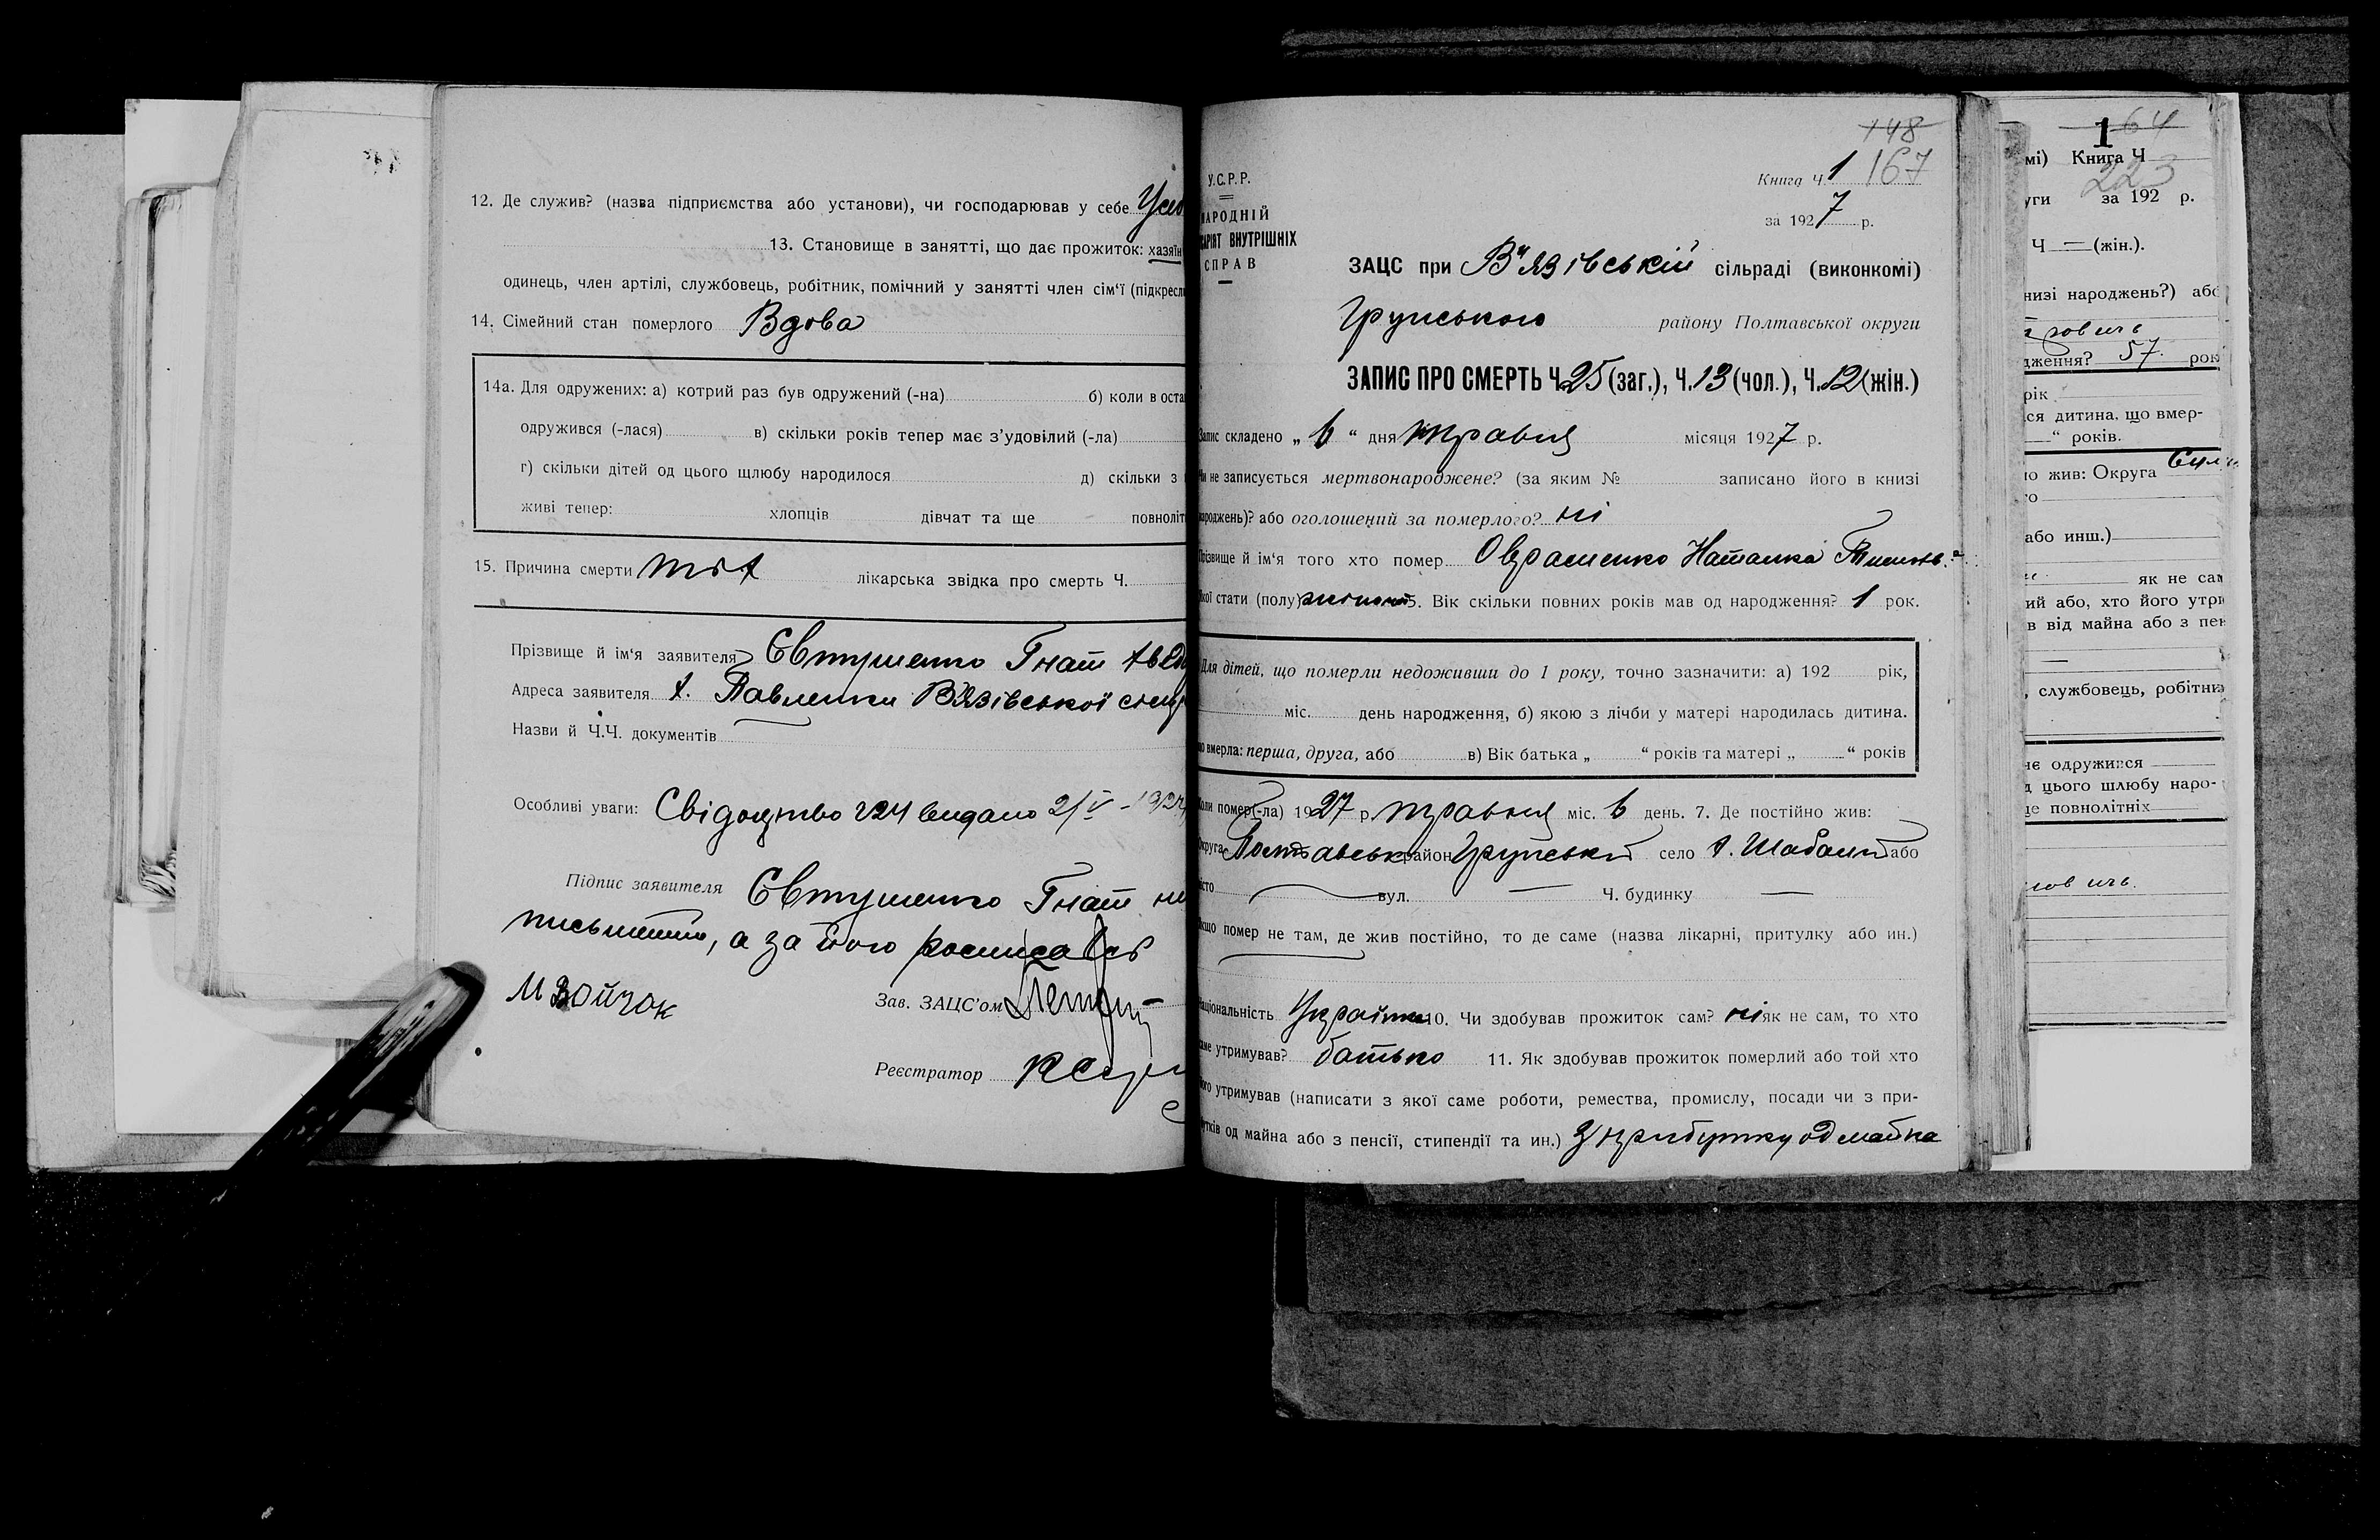 12. Де служив? (назва підприємства або установи), чи господарював у себе
13. Становище в занятті, що дає прожиток: хазяїн
одинець, член артілі, службовець, робітник, помічний у занятті член сім'ї (підкресл
14. Сімейний стан померлого Вдова
14а. Для одружених: а) котрий раз був одружений (-на) б) коли в оста
одружився (-лася) в) скільки років тепер має з'удовілий (-ла)
г) скільки дітей од цього шлюбу народилося д) скільки з
живі тепер: хлопців дівчат та ще повноліт
15. Причина смерти лікарська звідка про смерть Ч.
Прізвище й ім'я заявителя Євтушенко Гнат
Адреса заявителя х. Павленки Вязівської
Назви й Ч.Ч. документів
Особливі уваги: Свідоцтво 224 видано 2/V - 1927
Підпис заявителя Євтушенко Гнат не
письменний, а за його росписався
М Бойчок
Зав. ЗАЦС'ом
Реєстратор
148
Книга Ч. 1 167
за 1927 р.
У.С.Р.Р.
НАРОДНІЙ
САРІЯТ ВНУТРІШНІХ
СПРАВ
ЗАЦС при В'язівській сільраді (виконкомі)
Грунського району Полтавської округи
ЗАПИС ПРО СМЕРТЬ Ч. 25 (заг.), Ч. 13 (чол.), Ч. 12 (жін.)
Запис складено „ 6 “ дня травня місяця 1927 р.
Чи не записується мертвонароджене? (за яким № записано його в книзі
народжень)? або оголошений за померлого? ні
Прізвище й ім'я того хто помер Наталка
Якої стати (полу) жіночої 5. Вік скільки повних років мав од народження? 1 рок.
Для дітей, що померли недоживши до 1 року, точно зазначити: а) 192 рік,
міс. день народження, б) якою з лічби у матері народилась дитина.
що вмерла: перша, друга, або в) Вік батька „ “ років та матері „ “ років
Коли помер(-ла) 1927 р. травня міс. 6 день. 7. Де постійно жив:
Округа Полтавськ район Грунський село х. Шабалт або
місто вул. — Ч. будинку —
Якщо помер не там, де жив постійно, то де саме (назва лікарні, притулку або ин.)
Національність Українка 10. Чи здобував прожиток сам? ні як не сам, то хто
саме утримував? батько 11. Як здобував прожиток померлий або той хто
його утримував (написати з якої саме роботи, ремества, промислу, посади чи з при-
бутків од майна або з пенсії, стипендії та ин.) З прибутку од майна
1 64
мі) Книга Ч
223
уги за 192 р.
Ч — (жін.).
низі народжень?) або
дження? 57 рок
рік
ся дитина, що вмер-
“ років.
о жив: Округа
го
або инш.)
як не сам
ий або, хто його утри
в від майна або з пен
, службовець, робітник
не одружився
д цього шлюбу наро-
ще повнолітніх